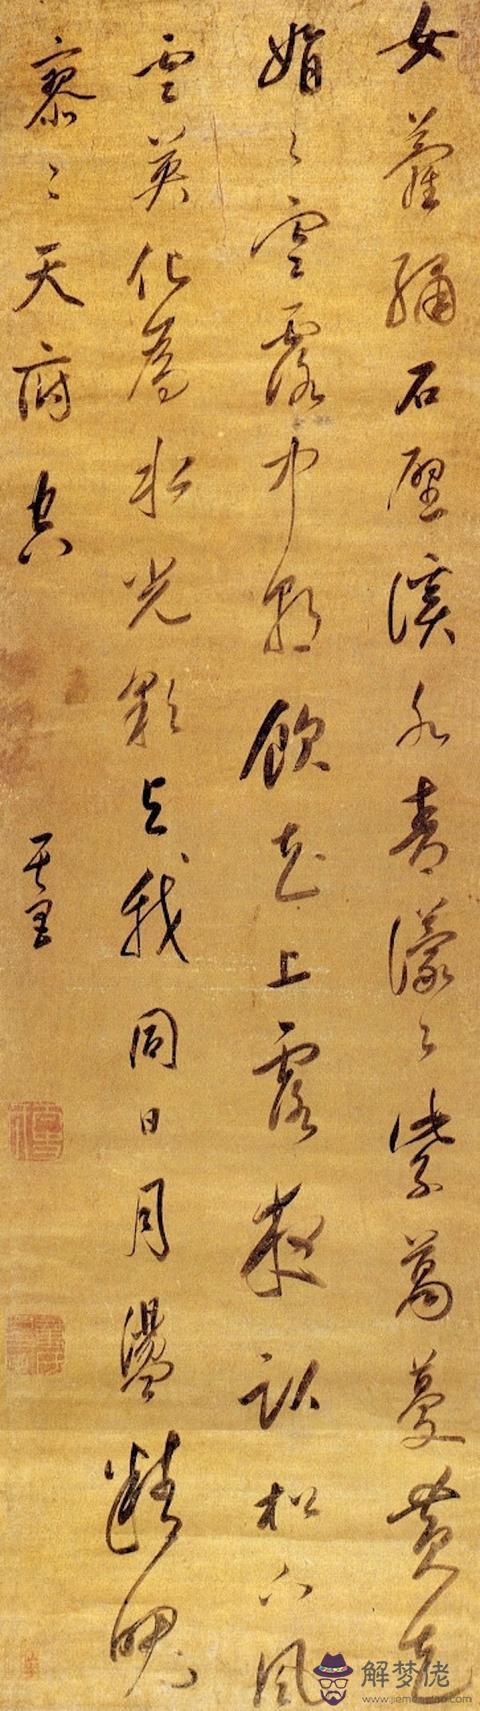 女蘿繡石壁溪水青濛〻紫葛蔓黄花
娟〻寒露中朝飲花上露夜臥松下風
雲英化為水光彩與我同日月盪精魄
寥〻天府空
其昌
解梦佬
www.jiemenglao.com